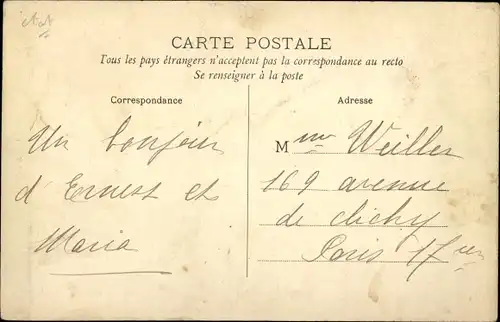 CARTE POSTALE
Tous les pays étrangers n'acceptent pas la correspondance au recto
Se renseigner à la poste
Correspondance
Un bonjour
d'Ernest et
Maria
Adresse
Mme Weiller
169 avenue
de clichy
Paris 17em